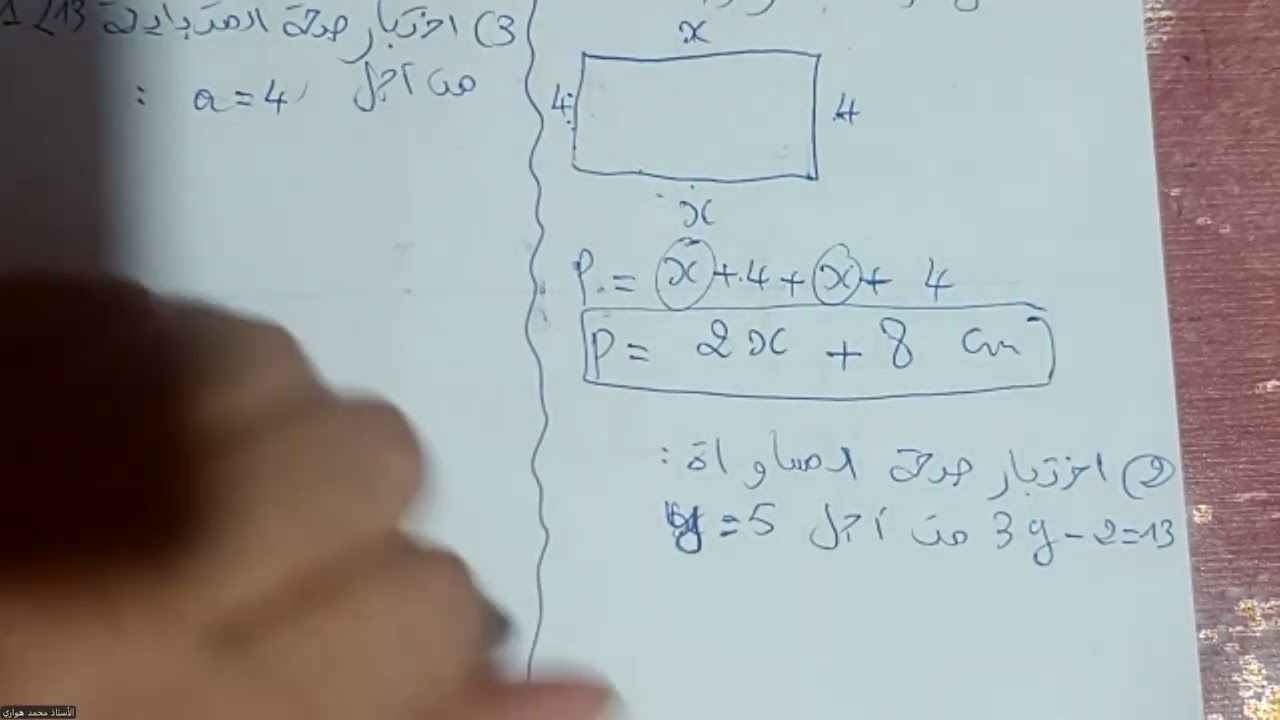 x
4
4
x
P = x + 4 + x + 4
P = 2x + 8 cm
2) اختبار صحة المساواة :
3y - 2 = 13 من أجل y = 5
3) اختبار صحة المتباينة 13>
من أجل a = 4 :
الأستاذ محمد هواري